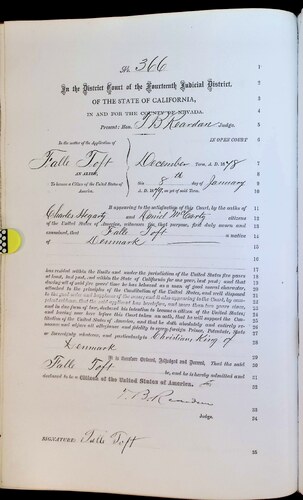 No. 366
In the District Court of the Fourteenth Judicial District,
OF THE STATE OF CALIFORNIA,
IN AND FOR THE COUNTY OF NEVADA.
Present: Hon. J B Reardan Judge.
In the matter of the Application of
IN OPEN COURT
Falle Toft
December Term, A. D. 1878
AN ALIEN,
this 8th day of January
To become a Citizen of the United States of America.
A. D. 1879, as yet of said Term.
It appearing to the satisfaction of this Court, by the oaths of
Charles Hegarty and Daniel McCarty citizens
of the United States of America, witnesses for that purpose, first duly sworn and
examined, that Falle Toft a native
of Denmark
has resided within the limits and under the jurisdiction of the United States five years
at least, last past, and within the State of California for one year, last past; and that
during all of said five years' time he has behaved as a man of good moral character,
attached to the principles of the Constitution of the United States, and well disposed
to the good order and happiness of the same; and it also appearing to the Court, by
competent evidence, that the said applicant has heretofore, and more than two years since,
and in due form of law, declared his intention to become a citizen of the United States;
and having now here before this Court taken an oath, that he will support the Con-
stitution of the United States of America, and that he doth absolutely and entirely re-
nounce and abjure all allegiance and fidelity to every foreign Prince, Potentate, State
or Sovereignty whatever, and particularly to Christian King of
Denmark
It is therefore Ordered, Adjudged and Decreed, That the said
Falle Toft be, and he is hereby admitted and
declared to be a Citizen of the United States of America.
J. B. Reardan
Judge.
SIGNATURE: Falle Toft